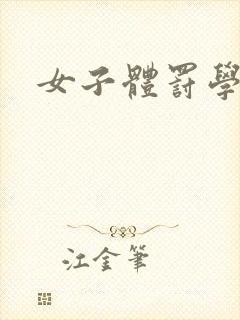 女子體罰學
江金筆